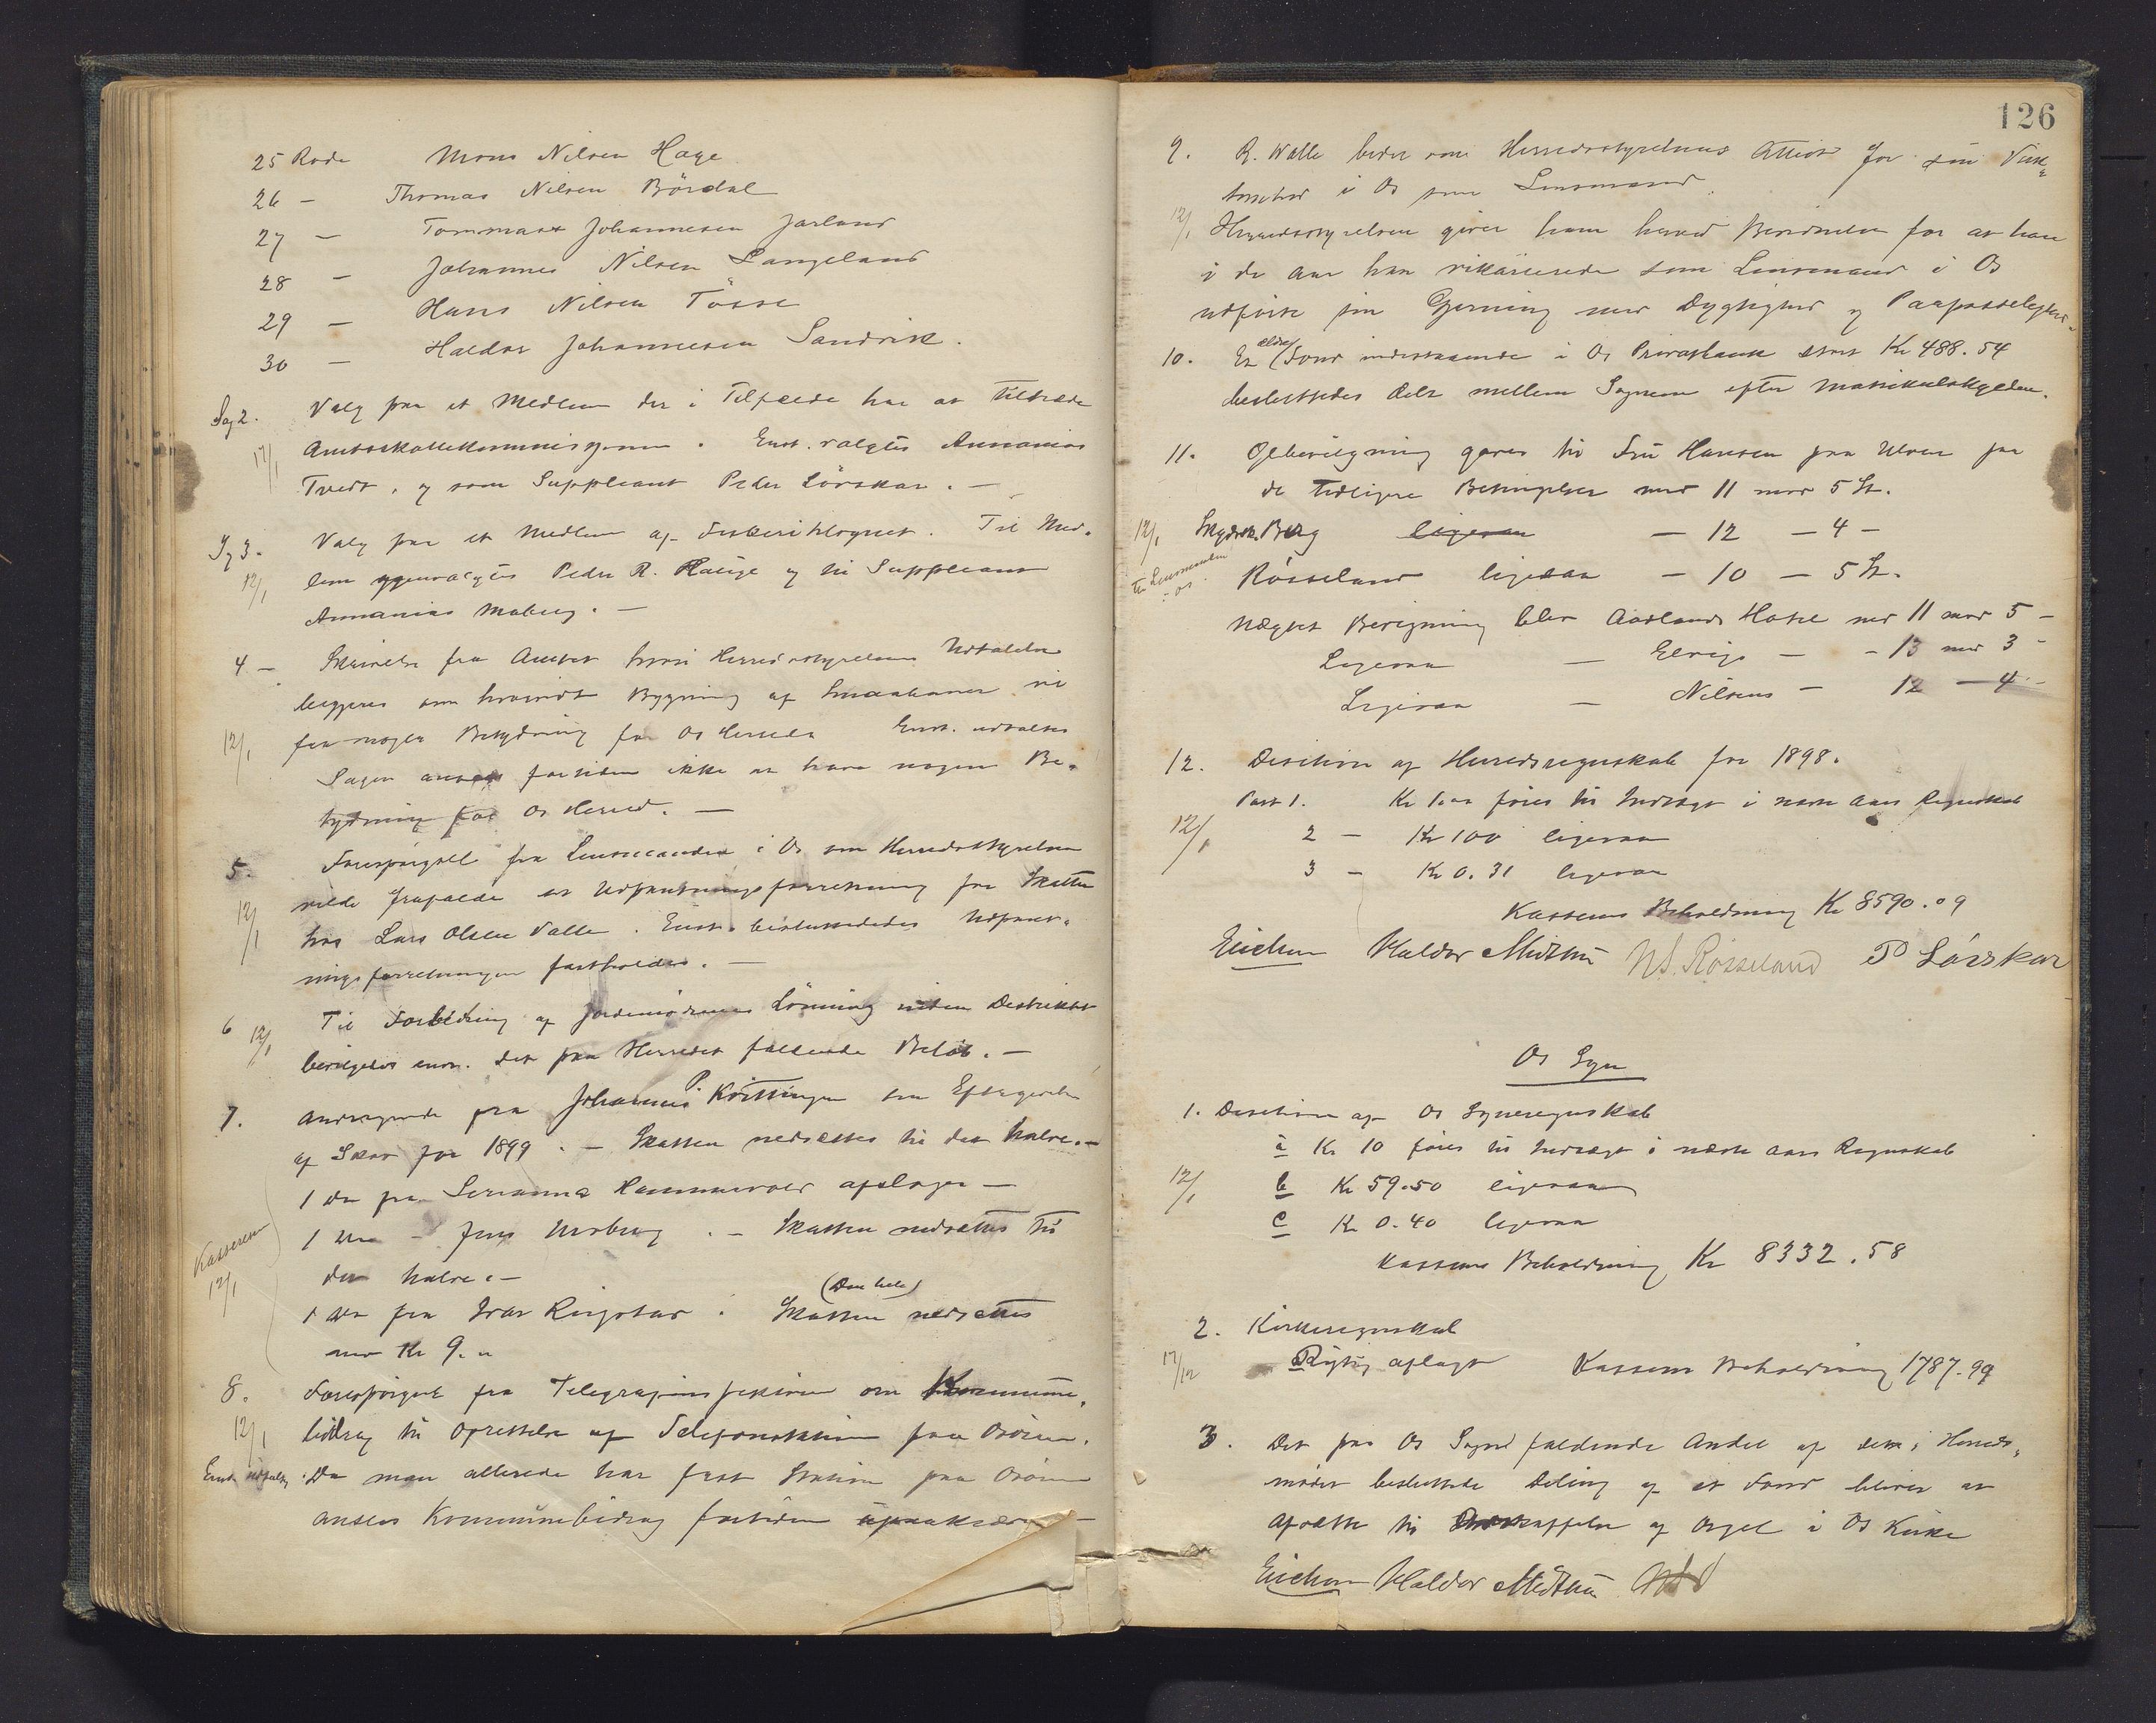 25 Rode Mons Nilsen Hage
26 — Thomas Nilsen Bördal
27 — Tommas Johannesen Jarland
28 — Johannes Nilsen Langeland
29 — Hans Nilsen Tösse
30 — Haldor Johannesen Sandvik.
Sag 2. Valg paa et Medlem der i Tilfælde har at tiltræde
Amtsskattekommissjonen. Enst. valgtes Annanias
Tvedt, og som Suppleant Peder Lörskar. —
Sg 3. Valg paa et Medlem af Til Med-
12/1 lem gjenvalgtes Peder R. Hauge og til Suppleant
Annanias Moberg. —
4 — Skrivelse fra Amtet hvori Herredsstyrelsens Udtalelse
begjæres om hvorvidt Bygning af Smaabaner vil
12/1 faa nogen Betydning for Os Herred. Enst. udtaltes
Sagen ansees fortiden ikke at have nogen Be-
tydning for Os Herred. —
5. Forespörgsel fra Lensmanden i Os om Herredsstyrelsen
vilde frafalde en Udpantningsforretning for Skatten
12/1 hos Lars Olsen Valle. Enst. besluttedes Udpant-
ningsforretningen fastholdes. —
6 12/1 Til Forbedring af Jordemödrenes Lönning inden Destriktet
bevilgedes enst. det paa Herredet faldende Belöb. —
7. Andragende fra Johannes P. om Eftergivelse
af Skat for 1899. — Skatten nedsættes til det halve. —
1 do fra Serianna afslages —
Kasseren 1 do — Jens Moberg. — Skatten nedsættes til
12/1 det halve. —
(Den hele)
1 do fra Ivar Ringstad. Skatten nedsættes
med Kr 9. „
8. Forespörgsel fra Telegrafinspektören om Kommune-
12/1 bidrag til Oprettelse af Telefonstation paa Osören.
Enst. udtaltes: Da man allerede har fast Station paa Osören
ansees Kommunebidrag fortiden
126
9. R. Walle beder om Herredsstyrelsens Attest for sin Virk-
somhed i Os som Lensmand.
12/1 Herredsstyrelsen giver ham herved Bevidnelse for at han
i de Aar han vikarierede som Lensmand i Os
udförte sin Gjerning med Dygtighed og Paapasselighed.
10. Et ældre Fond indestaaende i Os Privatbank stort Kr 488.54
besluttedes delt mellem Sognene efter Matrikulskylden.
11. Ölbevilgning gaves til Fru Hansen paa Ulven paa
de tidligere Betingelser med 11 mod 5 St.
12/1 Skydssk. Berg — 12 — 4 —
til Lensmanden i Os. Rösseland ligesaa — 10 — 5 St.
Nægtet Bevigning blev Aadlands Hotel med 11 mod 5 —
Ligesaa — Elvigs — - 13 mod 3 -
Ligesaa — Nilsens — 12 — 4 -
12. Desition af Herredsregnskab for 1898.
Post 1. Kr föres til Indtægt i næste Aars Regnskab
12/1 2 — Kr 100 ligesaa
3 — Kr 0.31 ligesaa
Kassens Beholdning Kr 8590.09
Erichsen Haldor Midttun N.S. Rösseland P Lörskar
Os Sogn
1. Desition af Os Sogneregnskab
a Kr 10 föres til Indtægt i næste Aars Regnskab
12/1 b Kr 59.50 ligesaa
c Kr 0.40 ligesaa
Kassens Beholdning Kr 8332.58
2. Kirkeregnskab
Rigtig aflagt Kassens Beholdning 1787.99
3. Det paa Os Sogn faldende Andel af den i Herreds-
mödet besluttede Deling af et Fond bliver at
afsætte til Anskaffelse af Orgel i Os Kirke
Erichsen Haldor Midttun